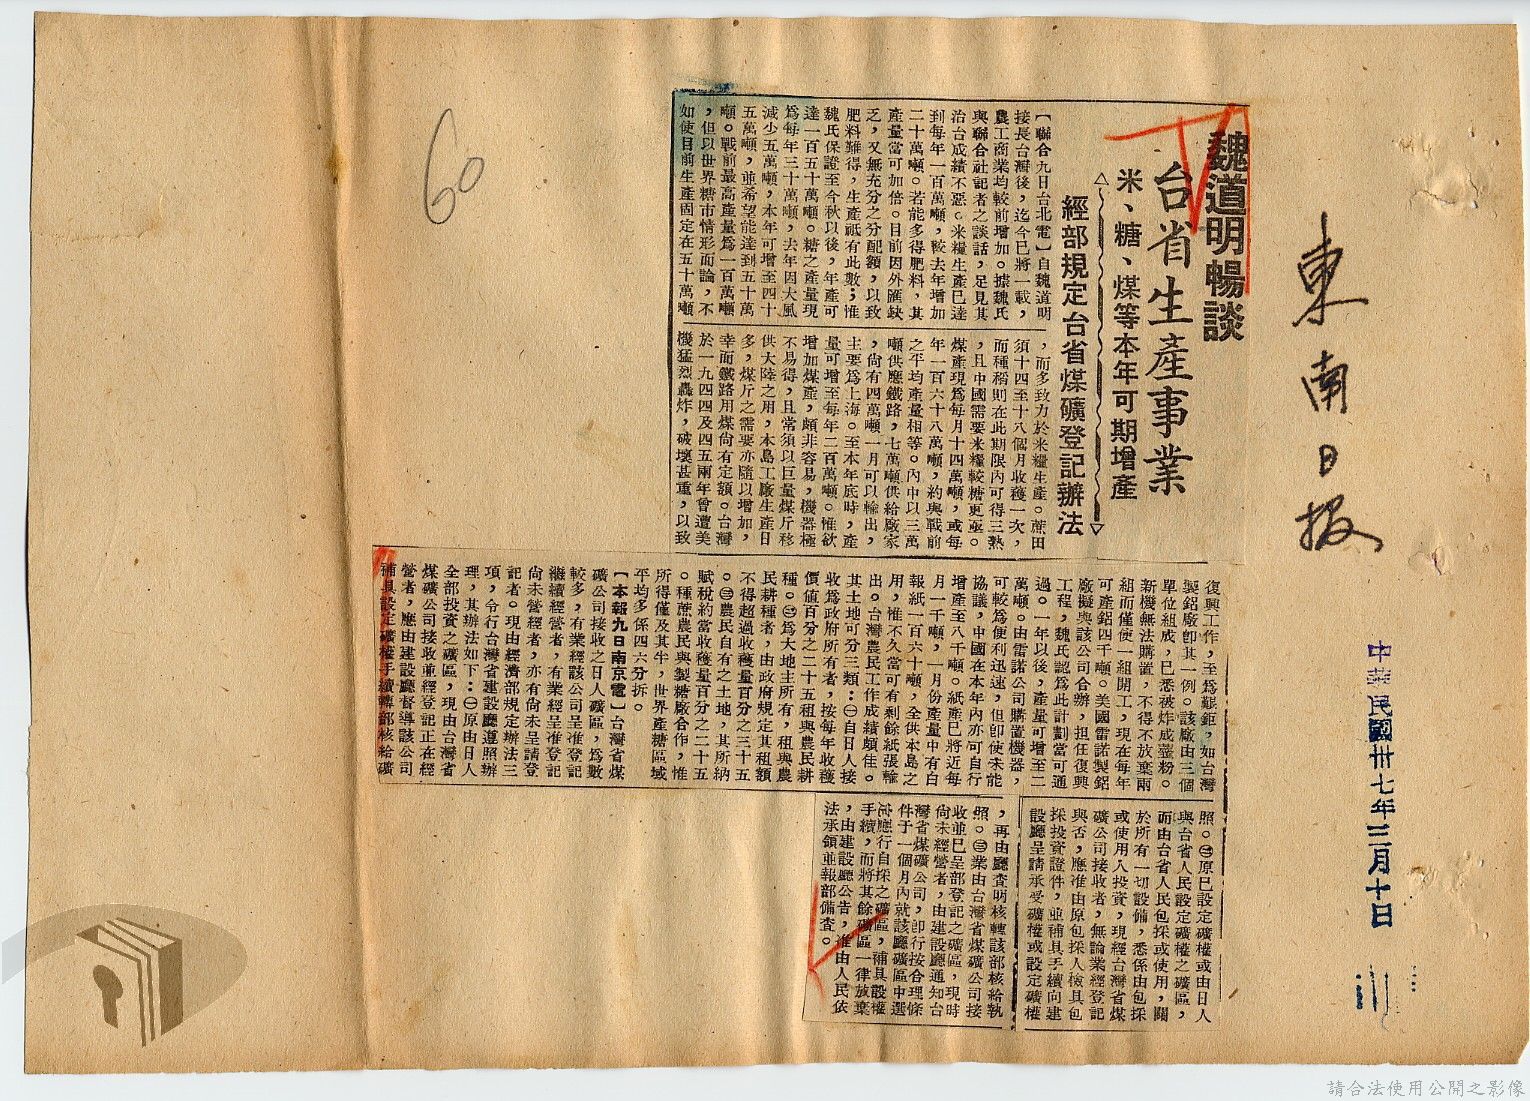 東南日报
中華民國卅七年三月十日
60
魏道明暢談
台省生產事業
米、糖、煤等本年可期增產
經部規定台省煤礦登記辦法
【聯合九日台北電】自魏道明
接長台灣後，迄今已將一載，
農工商業均較前增加。據魏氏
與聯合社記者之談話，足見其
治台成績不惡。米糧生產已達
到每年一百萬噸，較去年增加
二十萬噸。若能多得肥料，其
產量當可加倍。目前因外匯缺
乏，又無充分之分配額，以致
肥料難得，生產祇有此數；惟
魏氏保證至今秋以後，年產可
達一百五十萬噸。糖之產量現
為每年三十萬噸，去年因大風
減少五萬噸，本年可增至四十
五萬噸，並希望能達到五十萬
噸。戰前最高產量爲一百萬噸
，但以世界糖市情形而論，不
如使目前生產固定在五十萬噸
，而多致力於米糧生產。蔗田
須十四至十八個月收獲一次，
而種稻則在此期限內可得三熟
，且中國需要米糧較糖更亟。
煤產現爲每月十四萬噸，或每
年一百六十八萬噸，約與戰前
之平均產量相等。內中以三萬
噸供應鐵路，七萬噸供給廠家
，尚有四萬噸一月可以輸出，
主要爲上海。至本年底時，產
量可增至每年二百萬噸。惟欲
增加煤產，頗非容易，機器極
不易得，且常須以巨量煤斤移
供大陸之用，本島工廠生產日
多，煤斤之需要亦隨以增加，
幸而鐵路用煤尚有定額。台灣
於一九四四及四五兩年曾遭美
機猛烈轟炸，破壞甚重，以致
復興工作，至爲艱鉅，如台灣
製鋁廠卽其一例。該廠由三個
單位組成，已悉被炸成虀粉。
新機無法購置，不得不放棄兩
組而僅使一組開工，現在每年
可產鋁四千噸。美國雷諾製鋁
廠擬與該公司合辦，担任復興
工程，魏氏認爲此計劃當可通
過。一年以後，產量可增至二
萬噸。由雷諾公司購置機器，
可較爲便利迅速，但卽使未能
協議，中國在本年內亦可自行
增產至八千噸。紙產已將近每
月一千噸，一月份產量中有白
報紙一百六十噸，全供本島之
用，惟不久當可有剩餘紙張輸
出。台灣農民工作成績頗佳。
其土地可分三類：㊀自日人接
收爲政府所有者，按每年收獲
價值百分之二十五租與農民耕
種。㊁爲大地主所有，租與農
民耕種者，由政府規定其租額
不得超過收獲量百分之三十五
。㊂農民自有之土地，其所納
賦稅約當收獲量百分之二十五
。種蔗農民與製糖廠合作，惟
所得僅及其半，世界產糖區域
平均多係四六分拆。
【本報九日南京電】台灣省煤
礦公司接收之日人礦區，爲數
較多，有業經該公司呈准登記
繼續經營者，有業經呈准登記
尚未營經者，亦有尚未呈請登
記者。現由經濟部規定辦法三
項，令行台灣省建設廳遵照辦
理，其辦法如下：㊀原由日人
全部投資之礦區，現由台灣省
煤礦公司接收並經登記正在經
營者，應由建設廳督導該公司
補具設定礦權手續轉部核給礦
照。㊁原已設定礦權或由日人
與台省人民設定礦權之礦區，
而由台省人民包採或使用，關
於所有一切設備，悉係由包採
或使用人投資，現經台灣省煤
礦公司接收者，無論業經登記
與否，應准由原包採人檢具包
採投資證件，並補具手續向建
設廳呈請承受礦權或設定礦權
，再由廳查明核轉該部核給執
照。㊂業由台灣省煤礦公司接
收並已呈部登記之礦區，現時
尚未經營者，由建設廳通知台
灣省煤礦公司，卽行按合理條
件于一個月內就該廳礦區中選
定應行自採之礦區，補具設權
手續，而將其餘礦區一律放棄
，由建設廳公告，准由人民依
法承領並報部備查。
請合法使用公開之影像